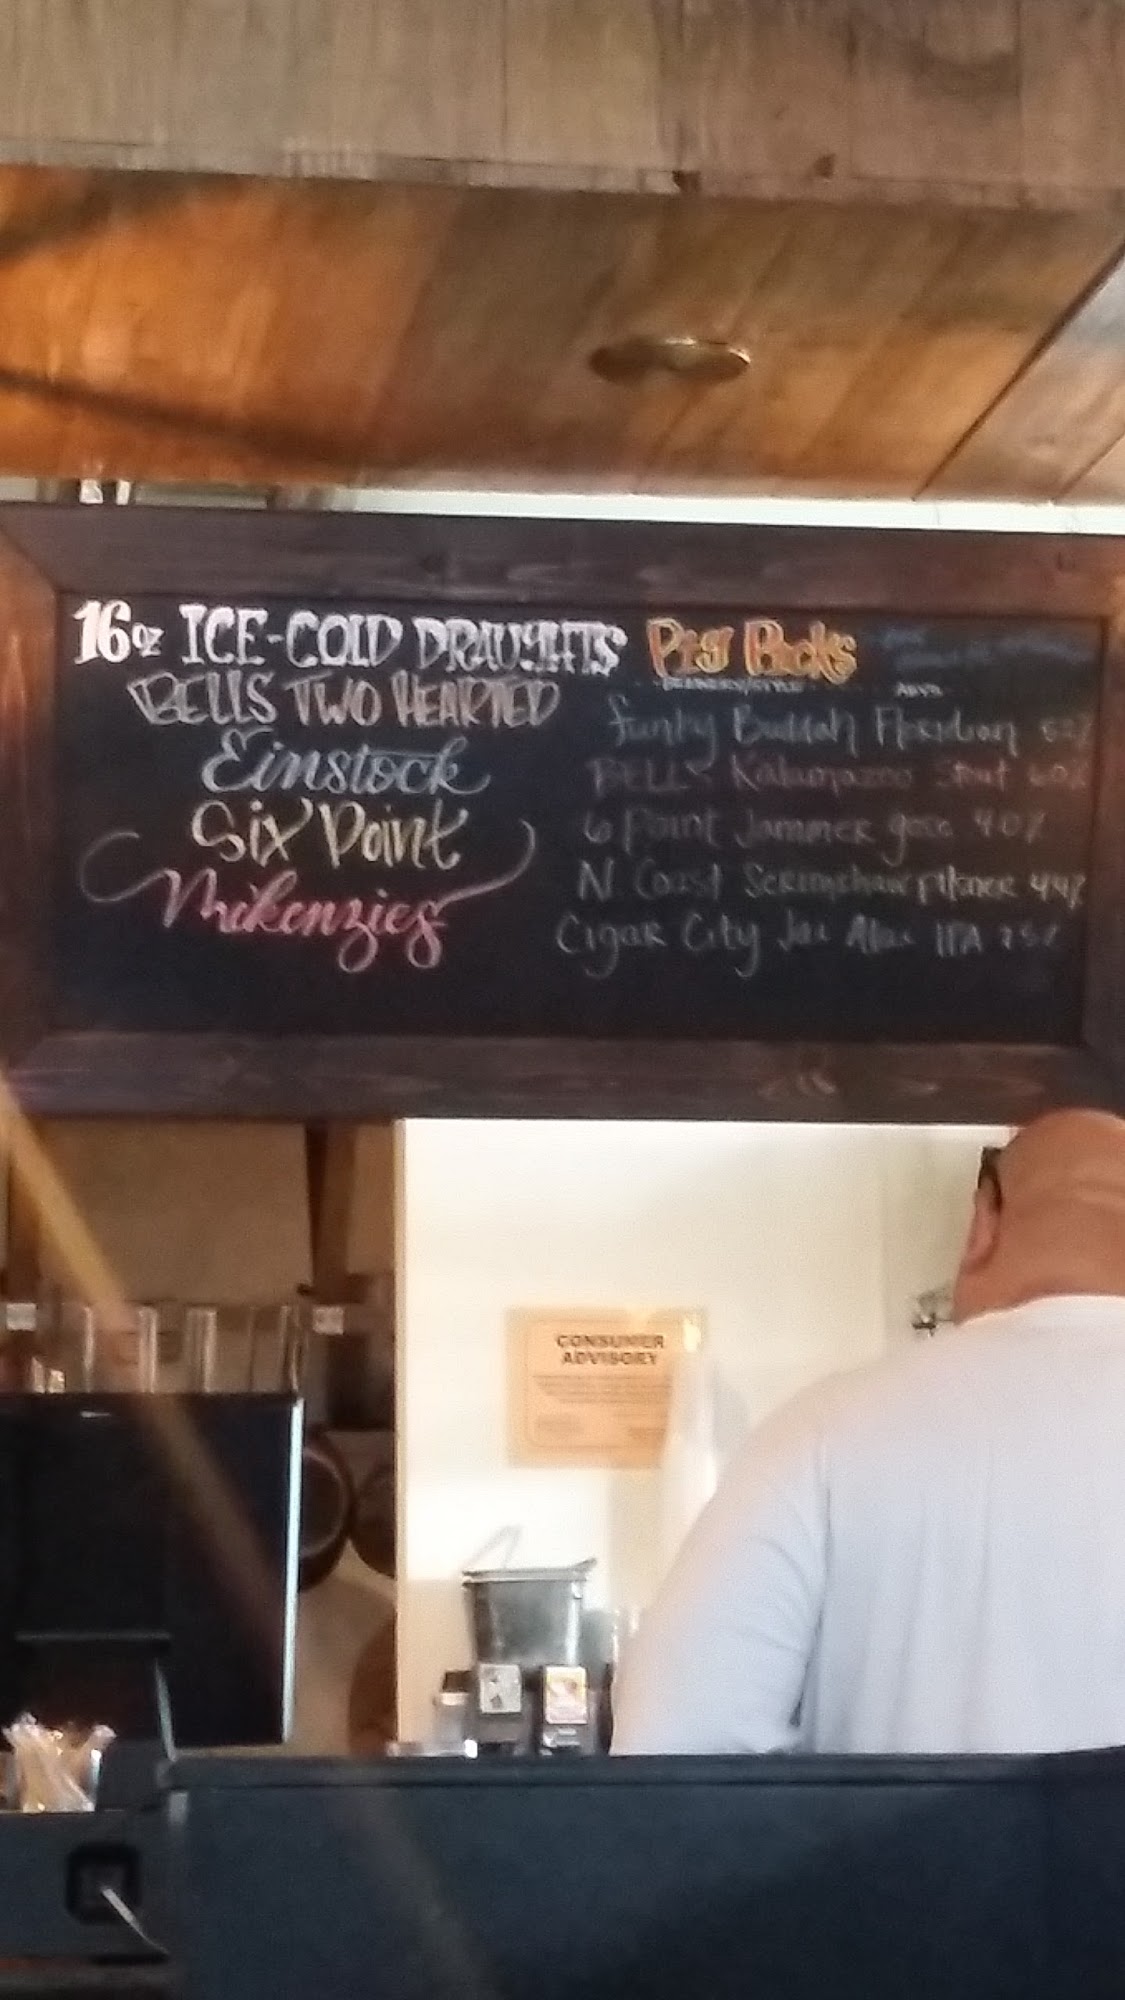 16oz ICE-COLD DRAUGHTS
BELLS TWO HEARTED
Einstock
Six Point
Mikenzies
Peg Packs
BREWERY/STYLE ABV%
Funky Buddah Floridian 52%
BELL'S Kalamazoo Stout 60%
6 Point Jammer gose 40%
N. Coast Scrimshaw pilsner 44%
Cigar City Jai Alai IPA 75%
CONSUMER
ADVISORY